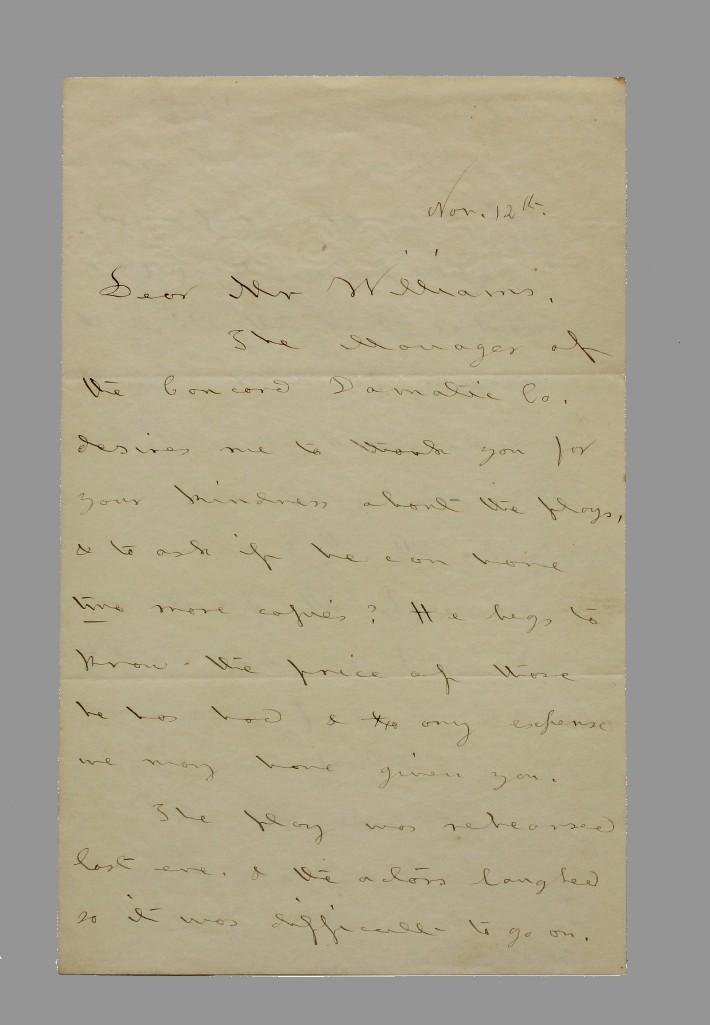 Nov. 12th.
Dear Mr Williams,
The Manager of
the Concord Damatic Co.
desires me to thank you for
your kindness about the plays,
& to ask if he can have
two more copies? He begs to
know the price of those
he has had & any expense
we may have given you.
The play was rehearsed
last eve. & the actors laughed
so it was difficult to go on.